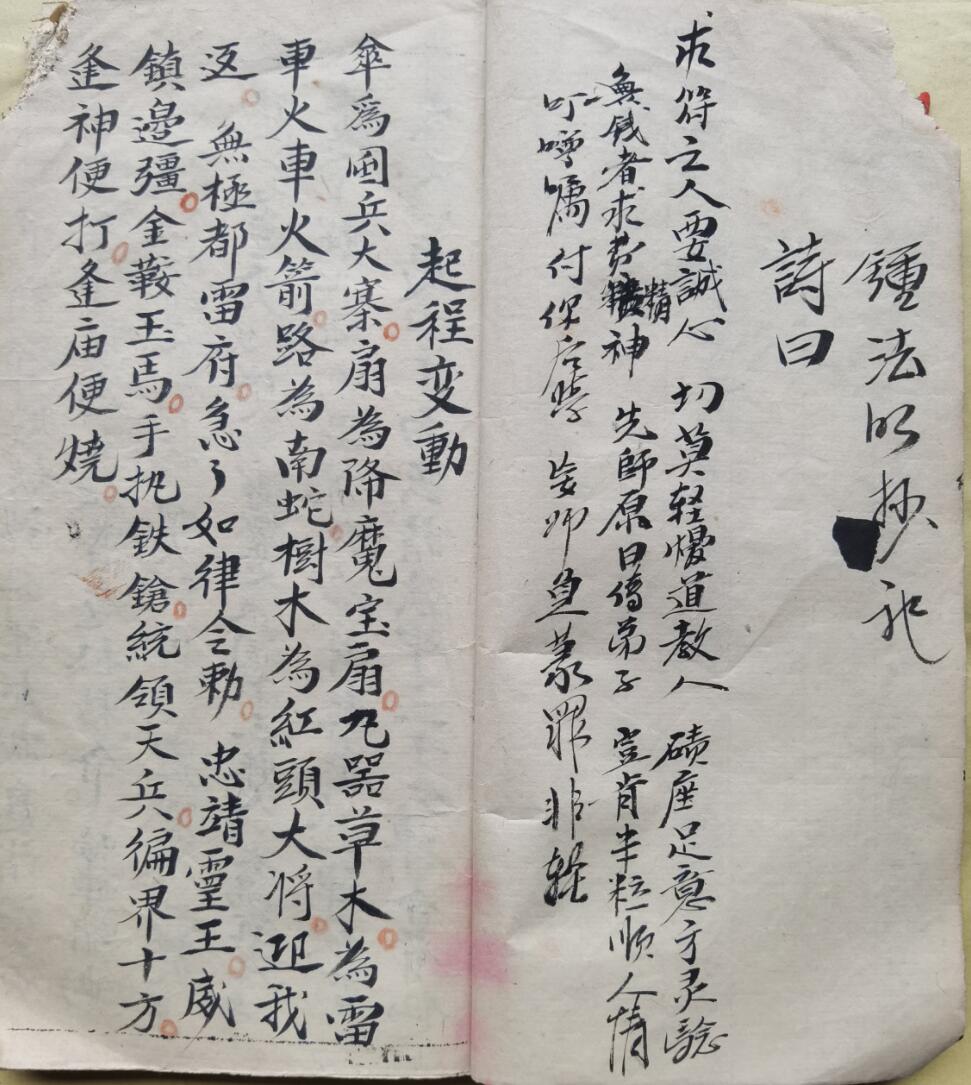 鍾法明抄祀
詩曰
求符之人要誠心 切莫轻慢道教人 磧座足意方灵驗
無钱者求費精神 先師原日傳弟子 豈肯半粒順人情
叮嚀囑付伱后學 妄師負義罪非輕
起程変動
傘為國兵大寨扇為降魔宝扇凡器草木為雷
車火車火箭路為南蛇樹木為紅頭大将迎我
返 無極都雷府急〻如律令勅 忠靖靈王威
鎮邉彊金鞍玉馬手执鉄鎗統領天兵徧界十方
逢神便打逢庙便燒